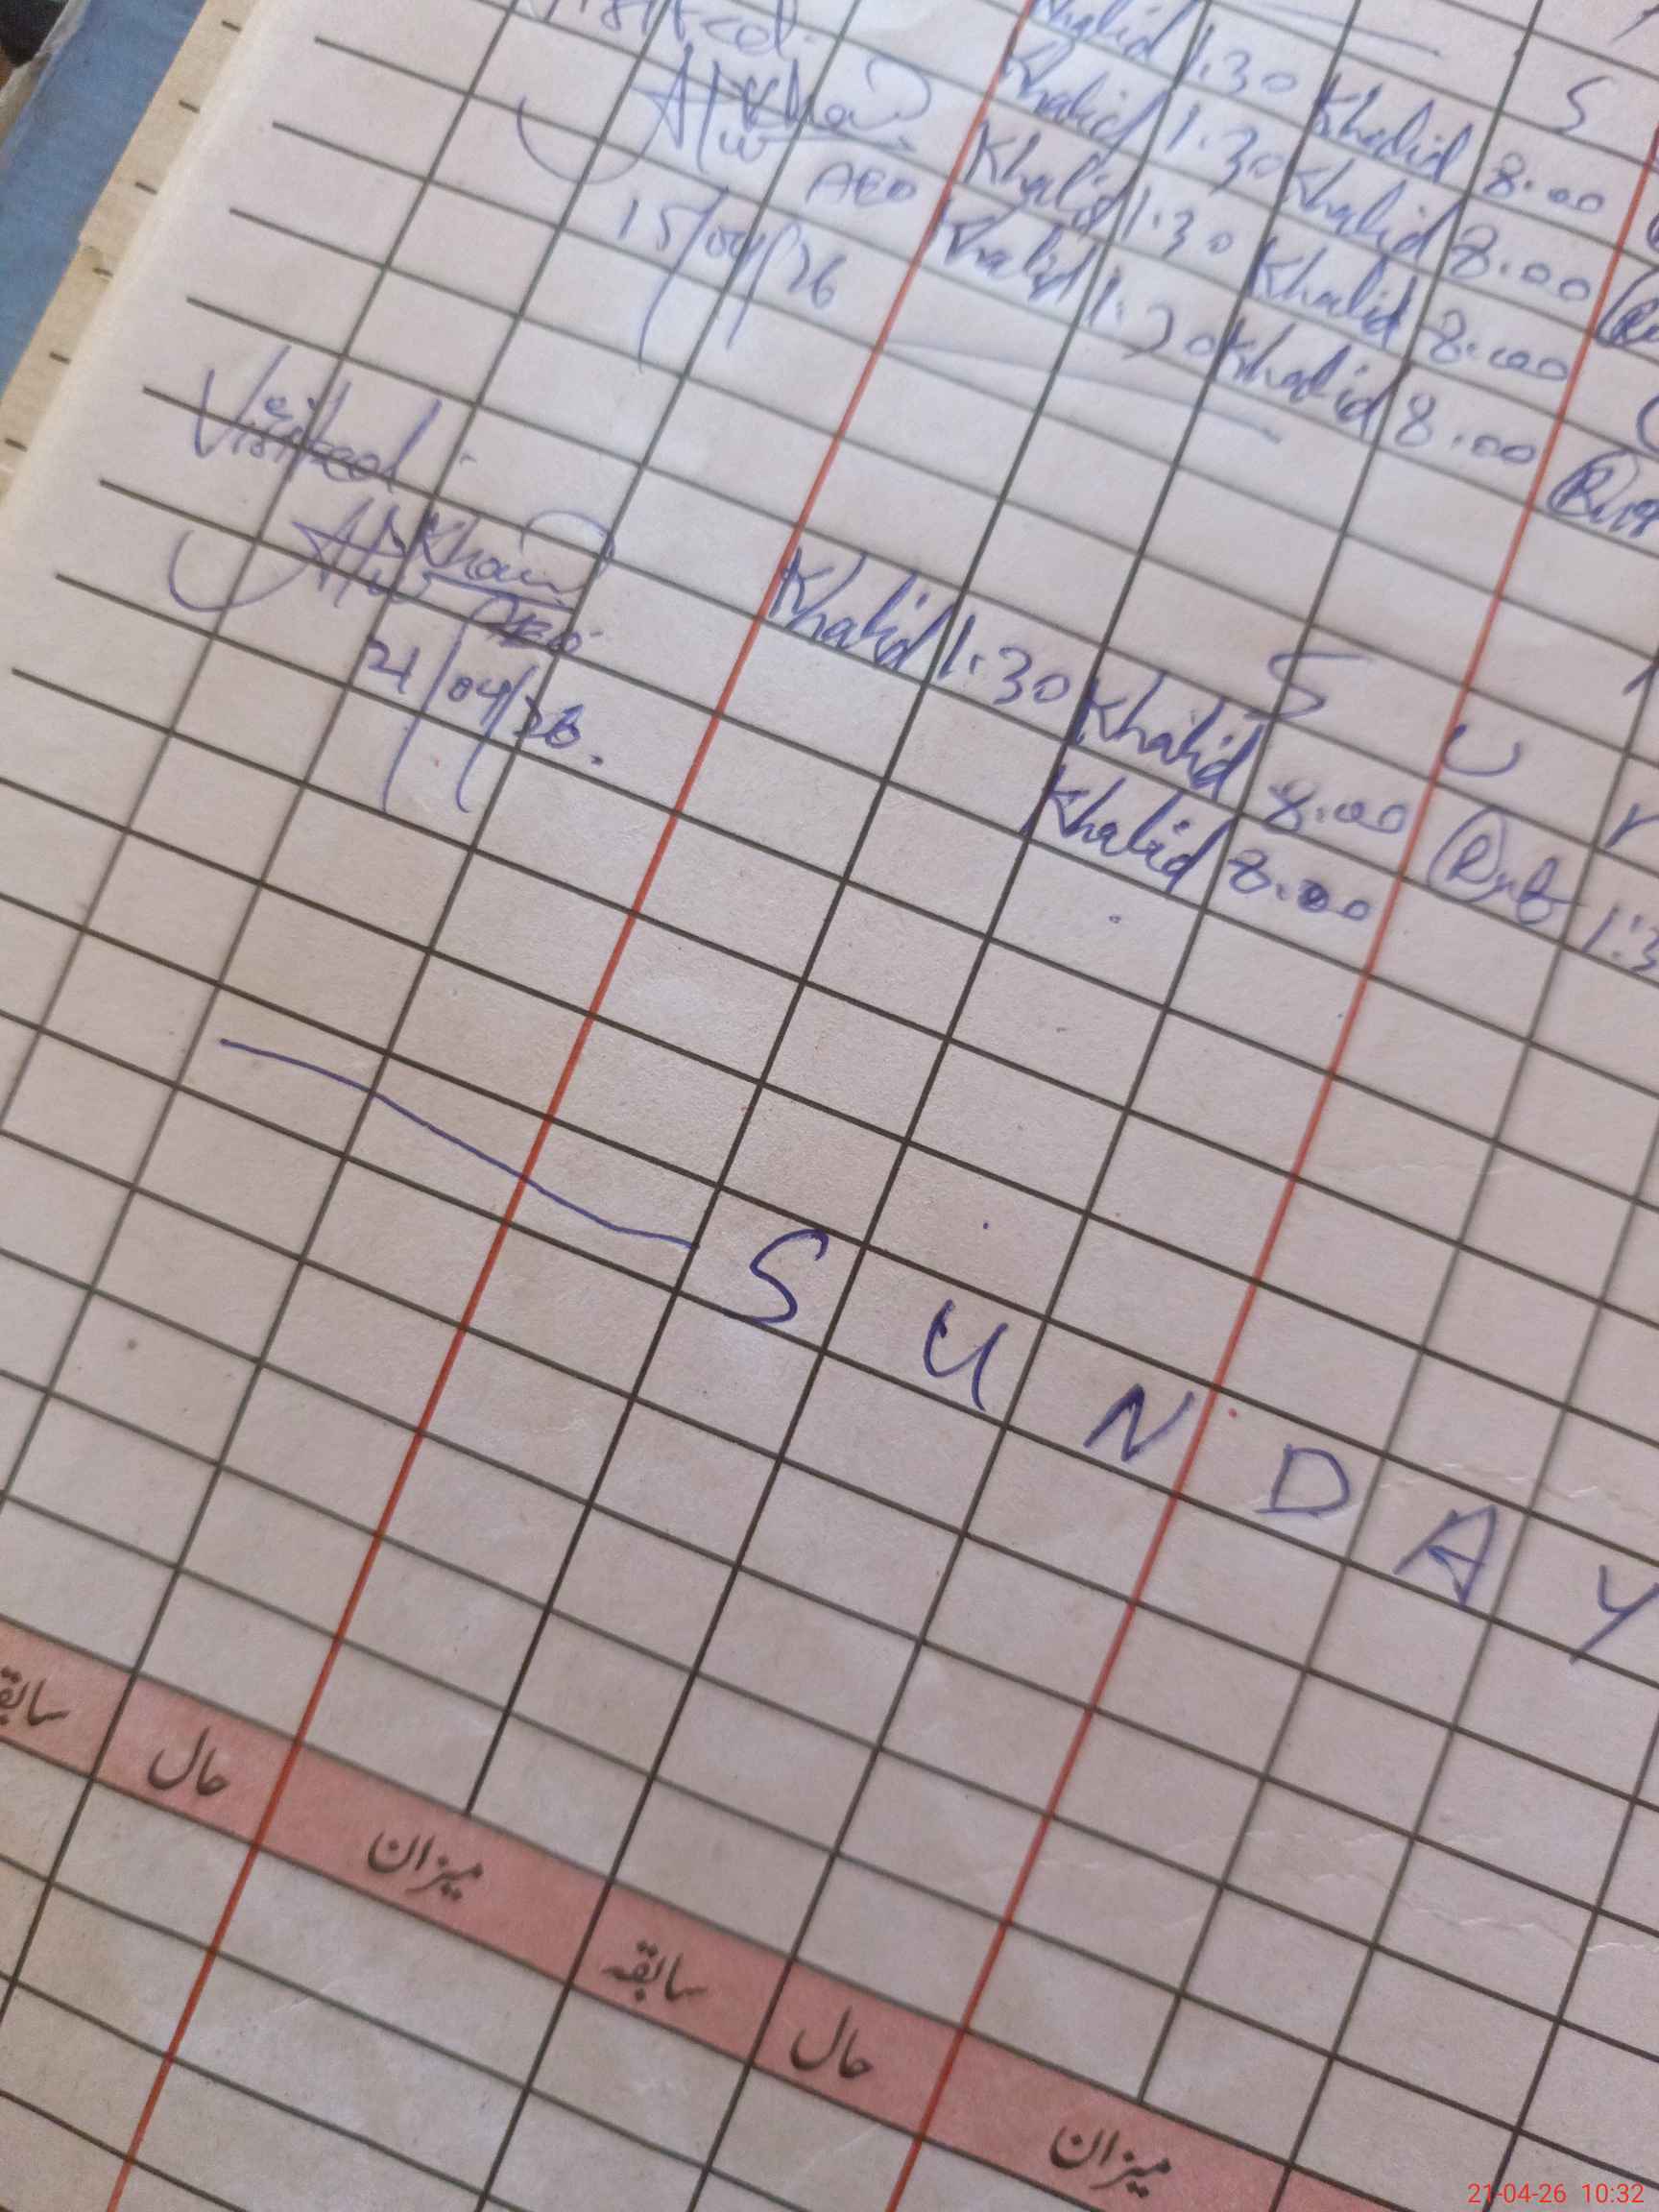 Visited.
Khalid 1.30 Khalid 8.00
Khalid 1.30 Khalid 8.00
AEO Khalid 1.30 Khalid 8.00
15/04/26 Khalid 1.30 Khalid 8.00
S
Visited.
AEO
21/04/26.
S U
Khalid 1.30 Khalid 8.00
Khalid 8.00
S U N D A Y
میزان حال سابقہ میزان حال
21-04-26 10:32